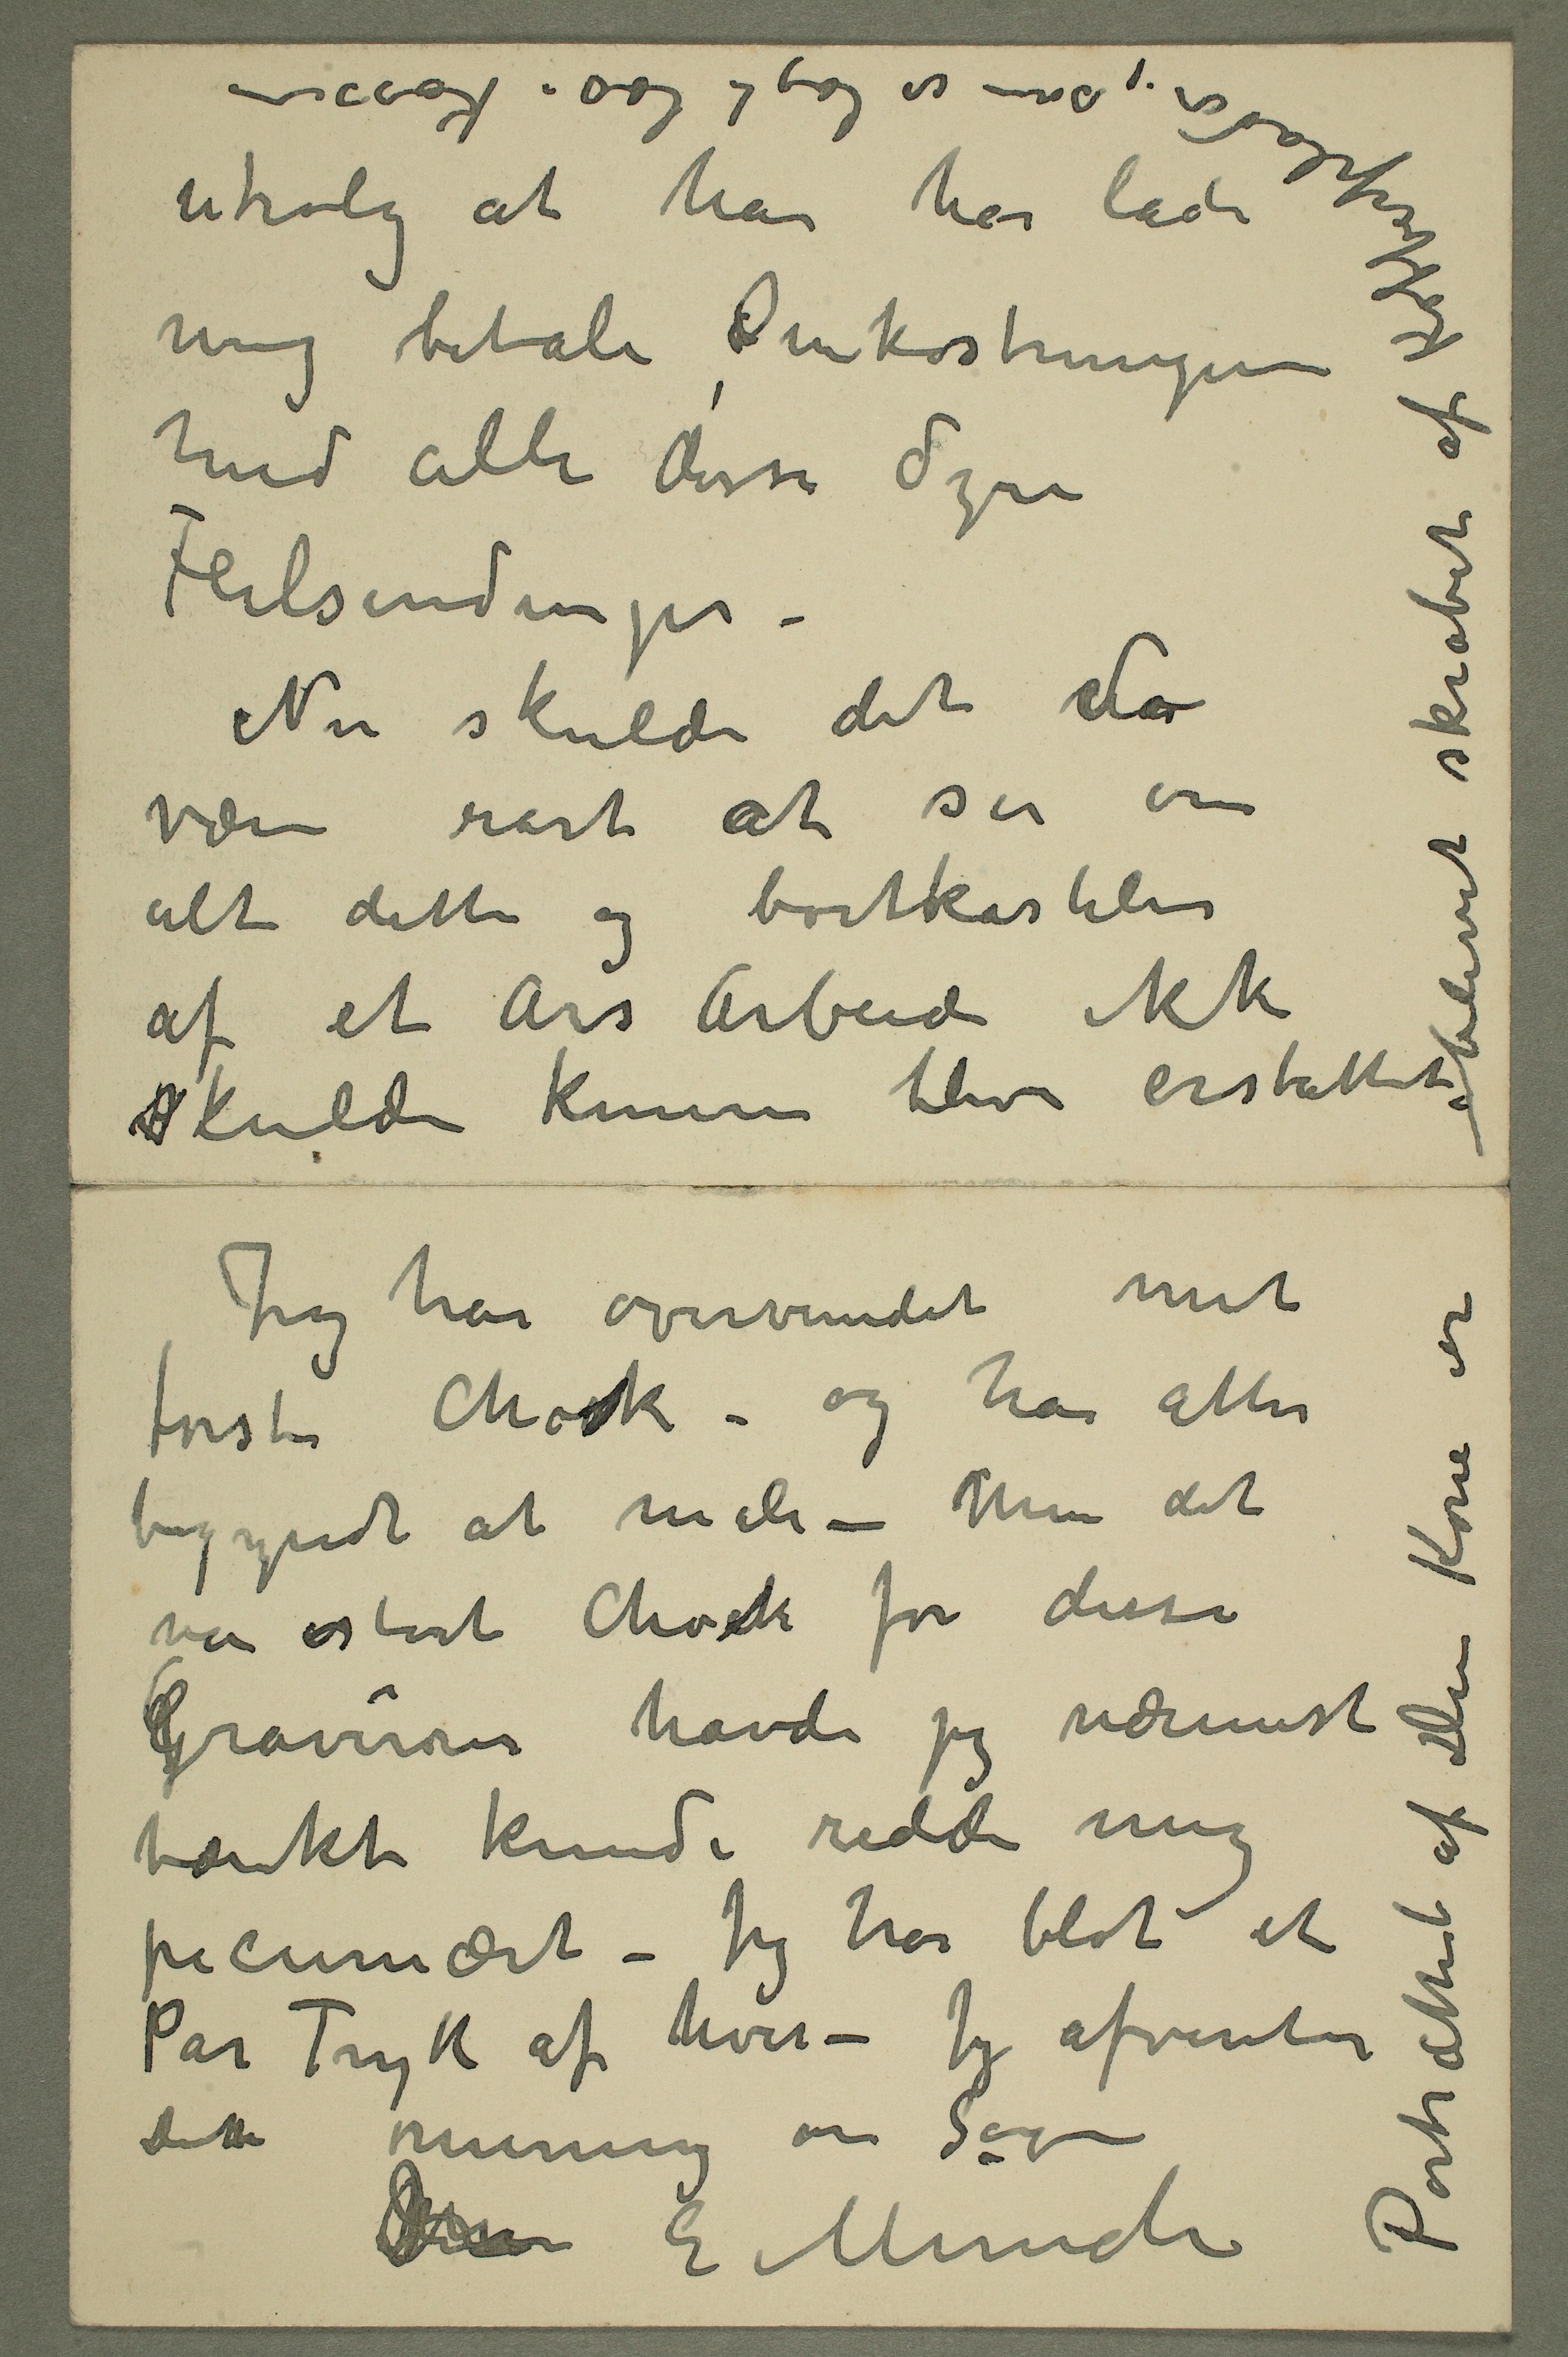 utrolig at han har lade
mig betale Omkostningerne
med alle disse dyre
Feilsendinger –
Nu skulde det da
være rart at se om
alt dette og bortkastelse
af et Års Arbeide ikke
skulde kunne blive erstattet
Jeg har overvundet mit
første Chock – og har atter
begyndt at male – Men det
var stort Chock for disse
Gravürer havde jeg nærmest
tænkt kunde redde mig
pecuniært – Jeg har blot et
Par Tryk af hver – Jeg afventer
mening om Sagen
E Munch
Portrættet af Din Kone er
blevet skrabet af